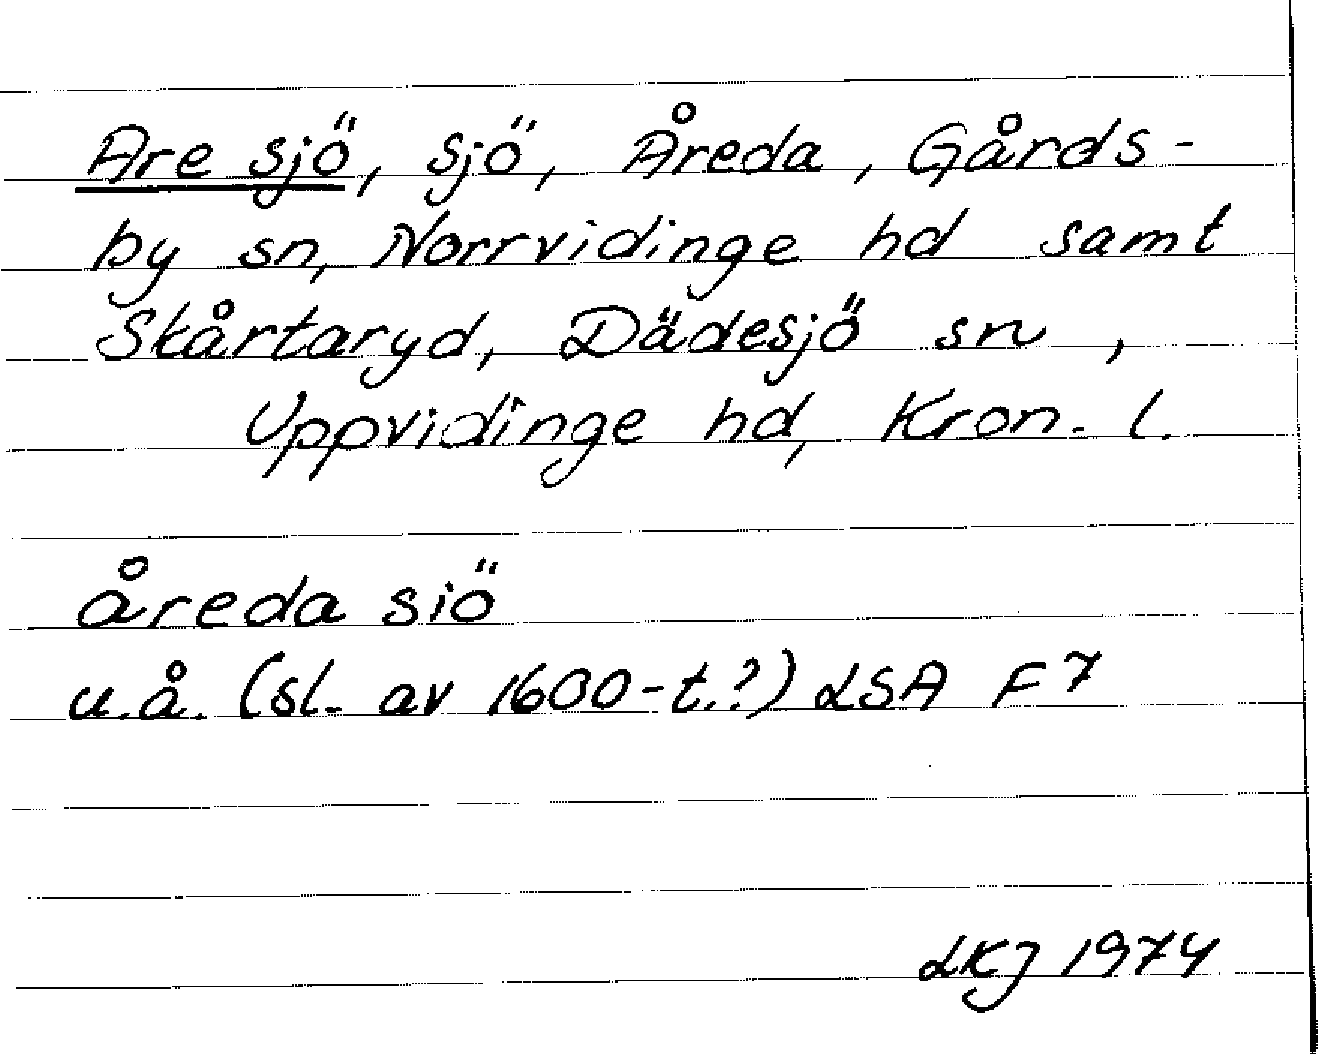 Are sjö, sjö, Åreda, Gårds-
by sn, Norrvidinge hd samt
Skårtaryd, Dädesjö sn,
Uppvidinge hd, Kron. l.
åreda siö
u.å. (sl. av 1600-t.?) LSA F7
LKJ 1974